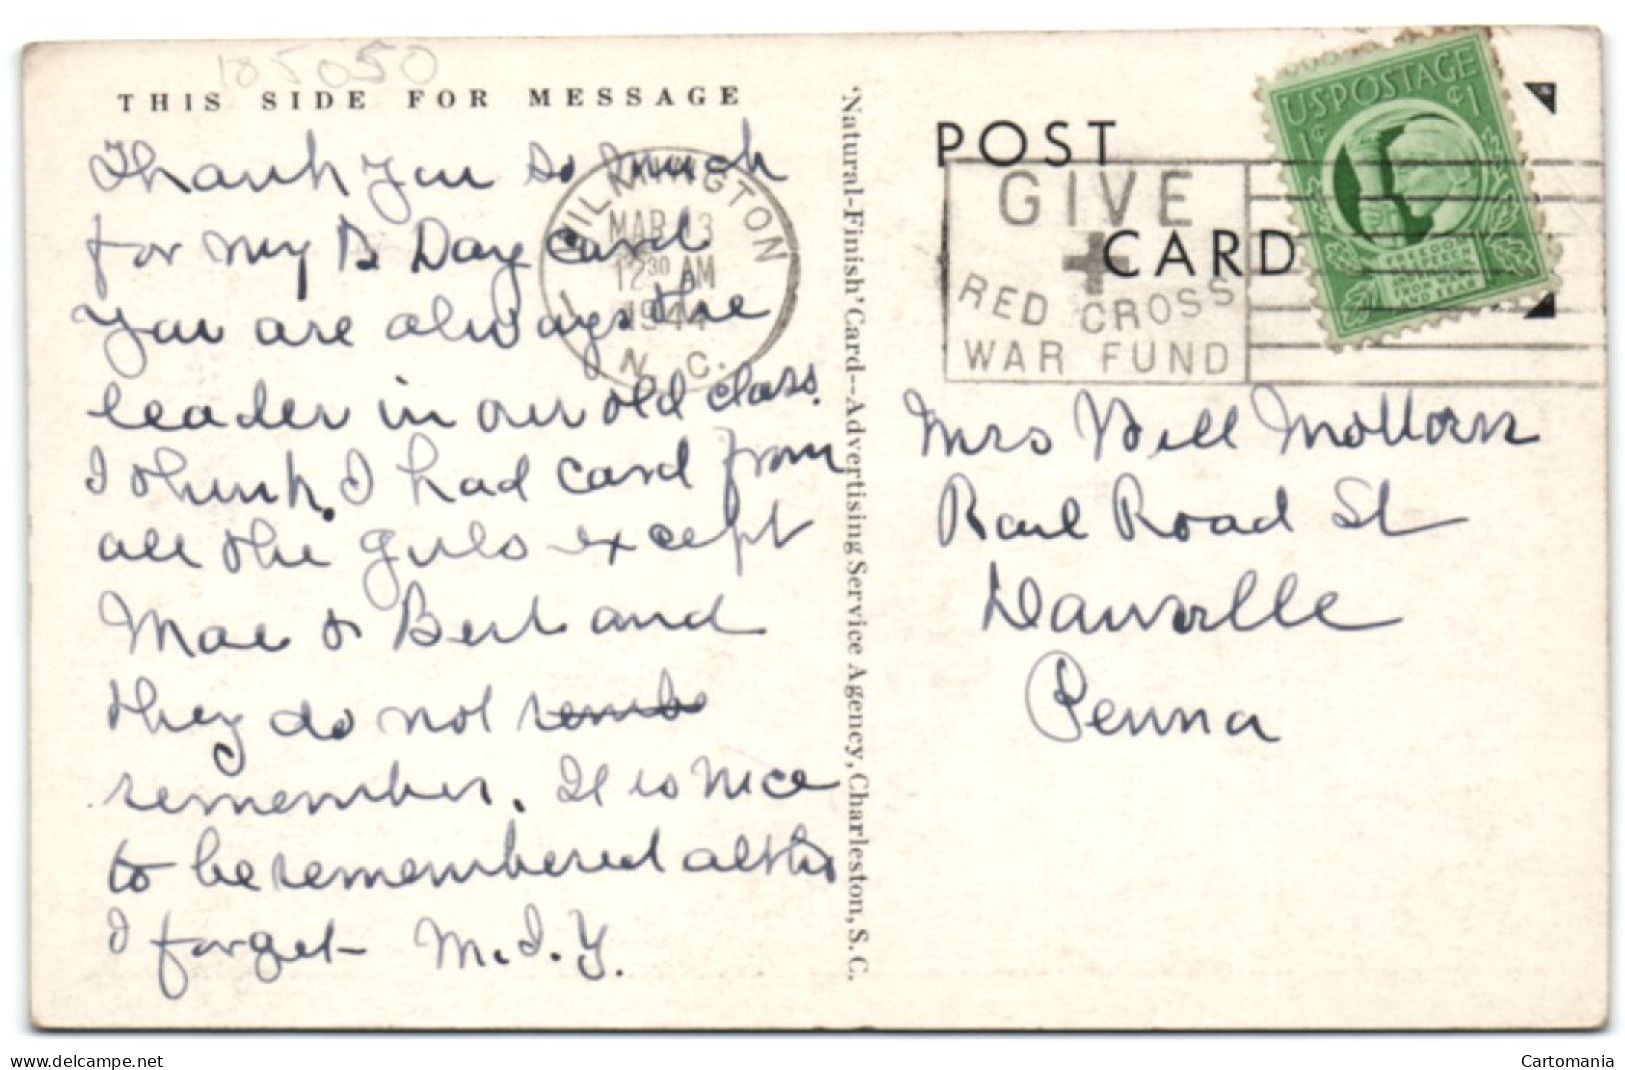 185050
THIS SIDE FOR MESSAGE
Thank you so much
for my B Day card
You are always the
leader in our old class.
I think. I had card from
all the girls except
Mae & Bert and
they do not
remember. It is nice
to be remembered altho
I forget M.I.Y.
WILMINGTON
MAR 13
12 30 AM
1944
N. C.
'Natural-Finish' Card--Advertising Service Agency, Charleston, S. C.
POST CARD
GIVE
RED CROSS
WAR FUND
U·S·POSTAGE
1¢ ¢1
FREEDOM
OF SPEECH
AND RELIGION
FROM WANT
AND FEAR
Mrs Will
Rail Road St
Danville
Penna
delcampe.net
Cartomania